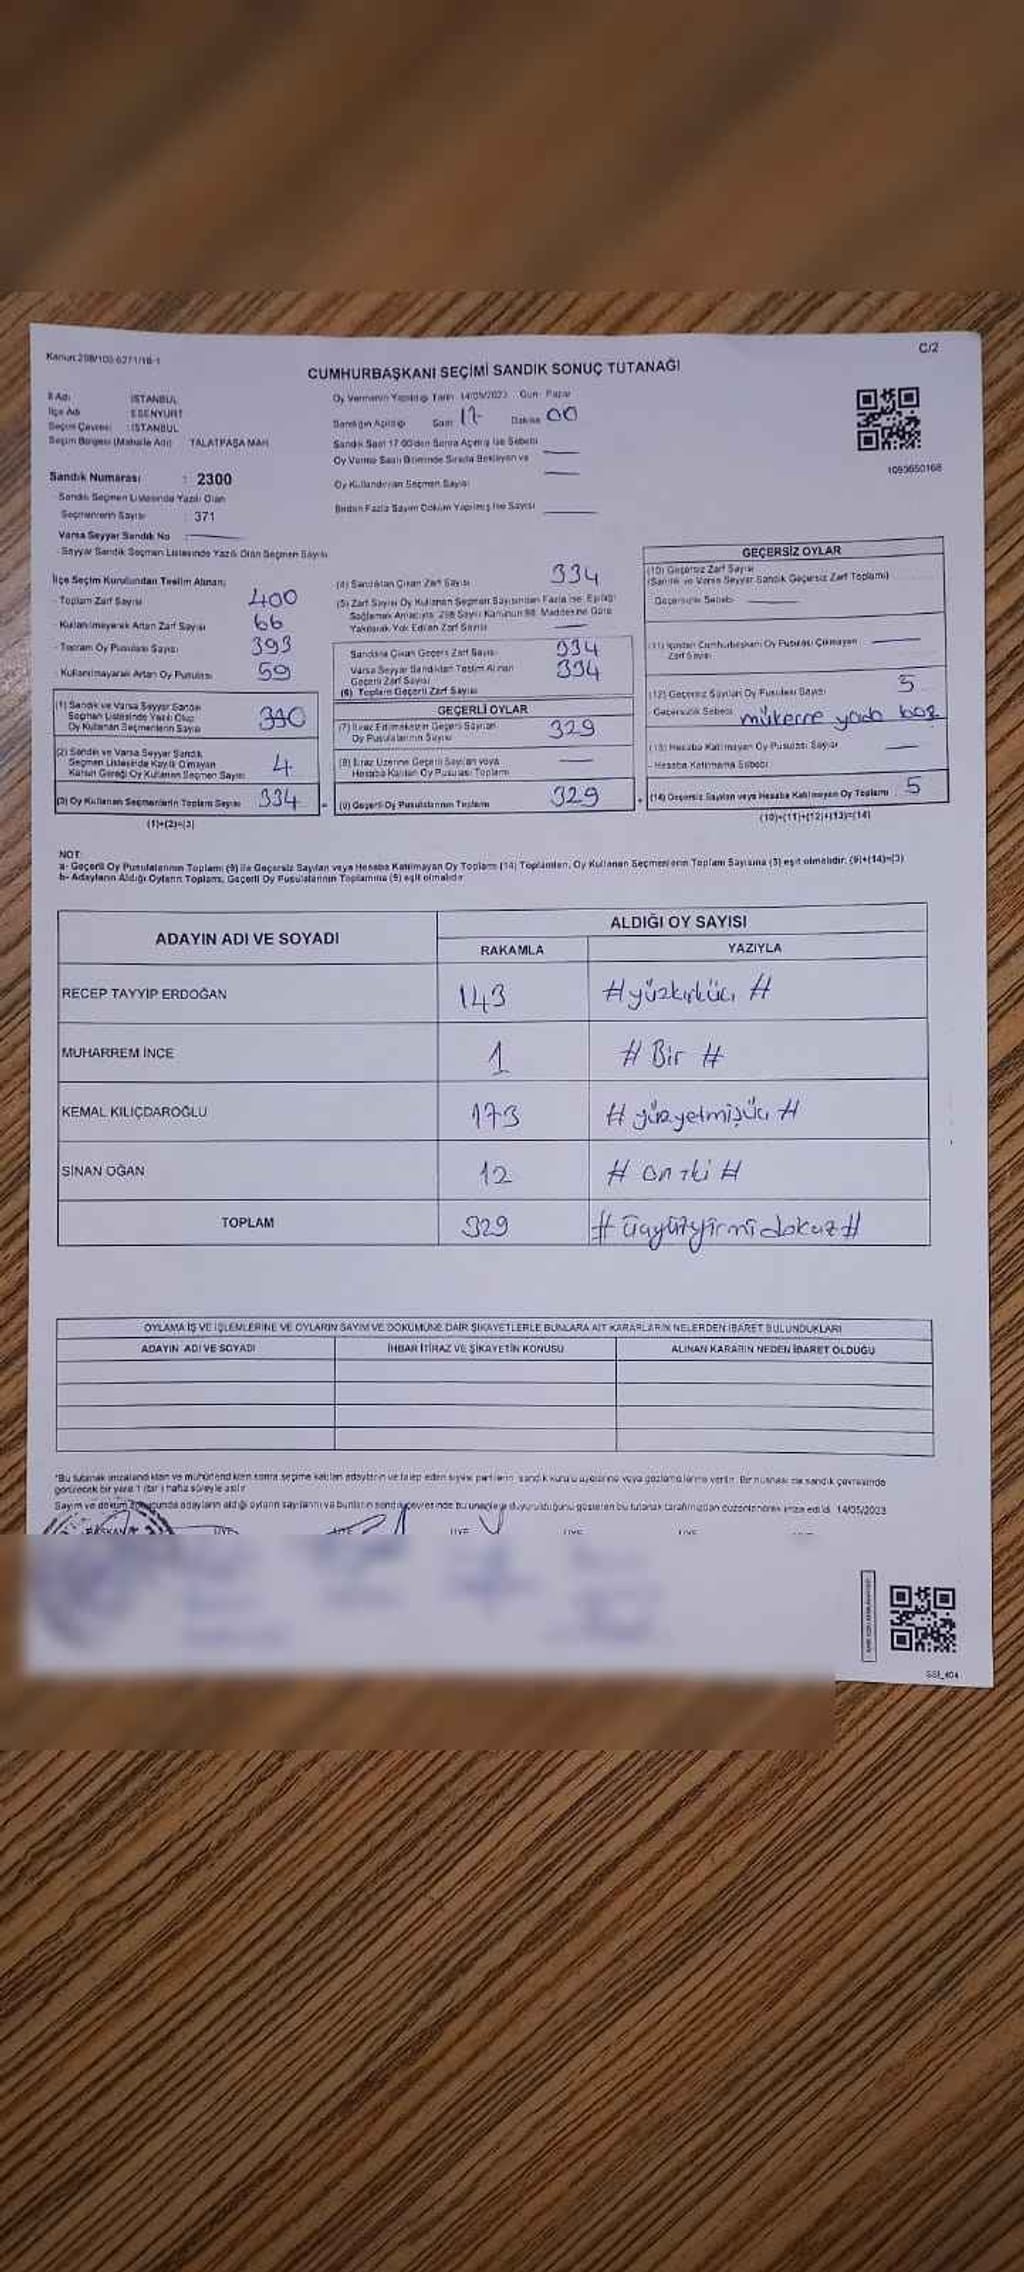 Kanun:298/105-6271/18-1
C/2
CUMHURBAŞKANI SEÇİMİ SANDIK SONUÇ TUTANAĞI
İl Adı : İSTANBUL
İlçe Adı : ESENYURT
Seçim Çevresi : İSTANBUL
Seçim Bölgesi (Mahalle Adı) TALATPAŞA MAH.
Sandık Numarası : 2300
Sandık Seçmen Listesinde Yazılı Olan
Seçmenlerin Sayısı : 371
Varsa Seyyar Sandık No
Seyyar Sandık Seçmen Listesinde Yazılı Olan Seçmen Sayısı
Oy Vermenin Yapıldığı Tarih 14/05/2023 Gün: Pazar
Sandığın Açıldığı Saat 17 Dakika 00
Sandık Saat 17:00'den Sonra Açılmış İse Sebebi
Oy Verme Saati Bitiminde Sırada Bekleyen ve
Oy Kullandırılan Seçmen Sayısı
Birden Fazla Sayım Döküm Yapılmış İse Sayısı
1093650168
İlçe Seçim Kurulundan Teslim Alınan;
- Toplam Zarf Sayısı 400
- Kullanılmayarak Artan Zarf Sayısı 66
- Toplam Oy Pusulası Sayısı 393
- Kullanılmayarak Artan Oy Pusulası 59
(1) Sandık ve Varsa Seyyar Sandık
Seçmen Listesinde Yazılı Olup
Oy Kullanan Seçmenlerin Sayısı 330
(2) Sandık ve Varsa Seyyar Sandık
Seçmen Listesinde Kayıtlı Olmayan
Kanun Gereği Oy Kullanan Seçmen Sayısı 4
(3) Oy Kullanan Seçmenlerin Toplam Sayısı 334
(1)+(2)=(3)
(4) Sandıktan Çıkan Zarf Sayısı 334
(5) Zarf Sayısı Oy Kullanan Seçmen Sayısından Fazla ise, Eşitliği
Sağlamak Amacıyla, 298 Sayılı Kanunun 98. Maddesine Göre
Yakılarak Yok Edilen Zarf Sayısı
Sandıkta Çıkan Geçerli Zarf Sayısı 334
Varsa Seyyar Sandıktan Teslim Alınan
Geçerli Zarf Sayısı 334
(6) Toplam Geçerli Zarf Sayısı
GEÇERLİ OYLAR
(7) İtiraz Edilmeksizin Geçerli Sayılan
Oy Pusulalarının Sayısı 329
(8) İtiraz Üzerine Geçerli Sayılan veya
Hesaba Katılan Oy Pusulası Toplamı
(9) Geçerli Oy Pusulalarının Toplamı 329
GEÇERSİZ OYLAR
(10) Geçersiz Zarf Sayısı
(Sandık ve Varsa Seyyar Sandık Geçersiz Zarf Toplamı)
Geçersizlik Sebebi
(11) İçinden Cumhurbaşkanı Oy Pusulası Çıkmayan
Zarf Sayısı
(12) Geçersiz Sayılan Oy Pusulası Sayısı 5
Geçersizlik Sebebi mükerre yada boş
(13) Hesaba Katılmayan Oy Pusulası Sayısı
- Hesaba Katılmama Sebebi
(14) Geçersiz Sayılan veya Hesaba Katılmayan Oy Toplamı 5
(10)+(11)+(12)+(13)=(14)
NOT:
a- Geçerli Oy Pusulalarının Toplamı (9) ile Geçersiz Sayılan veya Hesaba Katılmayan Oy Toplamı (14) Toplamları, Oy Kullanan Seçmenlerin Toplam Sayısına (3) eşit olmalıdır. (9)+(14)=(3)
b- Adayların Aldığı Oyların Toplamı, Geçerli Oy Pusulalarının Toplamına (9) eşit olmalıdır.
ADAYIN ADI VE SOYADI ALDIĞI OY SAYISI
RAKAMLA YAZIYLA
RECEP TAYYİP ERDOĞAN 143 #yüzkırküç #
MUHARREM İNCE 1 # Bir #
KEMAL KILIÇDAROĞLU 173 # yüzyetmişüç #
SİNAN OĞAN 12 # on iki #
TOPLAM 329 # üçyüzyirmidokuz #
OYLAMA İŞ VE İŞLEMLERİNE VE OYLARIN SAYIM VE DÖKÜMÜNE DAİR ŞİKAYETLERLE BUNLARA AİT KARARLARIN NELERDEN İBARET BULUNDUKLARI
ADAYIN ADI VE SOYADI İHBAR İTİRAZ VE ŞİKAYETİN KONUSU ALINAN KARARIN NEDEN İBARET OLDUĞU
*Bu tutanak imzalandıktan ve mühürlendikten sonra seçime katılan adayların ve talep eden siyasi partilerin, sandık kurulu üyelerine veya gözlemcilerine verilir. Bir nüshası da sandık çevresinde
görülecek bir yere 1 (bir) hafta süreyle asılır.
Sayım ve döküm sonucunda adayların aldığı oyların sayılarını ve bunların sandık çevresinde bu tutanakla duyurulduğunu gösteren bu tutanak tarafımızdan düzenlenerek imza edildi. 14/05/2023
BAŞKAN ÜYE ÜYE ÜYE ÜYE ÜYE
SSI_404